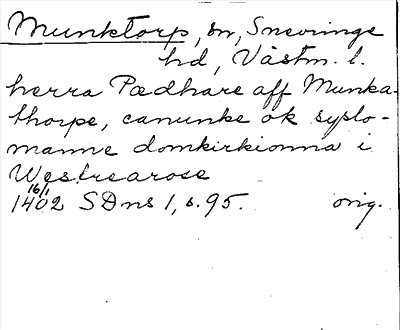 Munktorp, sn, Snevringe
hd, Västm. l.
herra Pædhare aff Munka-
thorpe, canunke ok syslo-
manne domkirkionna i
Westrearose
16/1
1402 SDns 1, s. 95. orig.